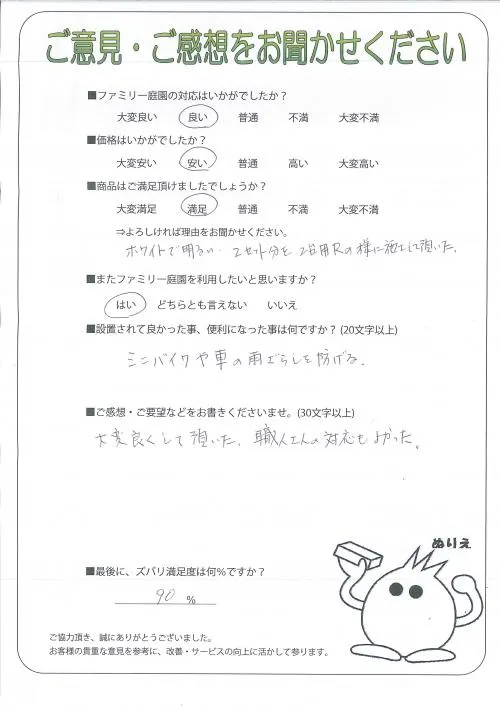 ご意見・ご感想をお聞かせください
■ファミリー庭園の対応はいかがでしたか？
大変良い 良い 普通 不満 大変不満
■価格はいかがでしたか？
大変安い 安い 普通 高い 大変高い
■商品はご満足頂けましたでしょうか？
大変満足 満足 普通 不満 大変不満
⇒よろしければ理由をお聞かせください。
ホワイトで明るい. 2セット分を 2台用Rの様に施工して頂いた.
■またファミリー庭園を利用したいと思いますか？
はい どちらとも言えない いいえ
■設置されて良かった事、便利になった事は何ですか？(20文字以上)
ミニバイクや車の雨ざらしを防げる.
■ご感想・ご要望などをお書きくださいませ。(30文字以上)
大変良くして頂いた. 職人さんの対応もよかった。
ぬりえ
■最後に、ズバリ満足度は何％ですか？
90 %
ご協力頂き、誠にありがとうございました。
お客様の貴重な意見を参考に、改善・サービスの向上に活かして参ります。